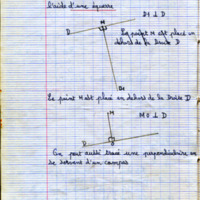 l'aide d'une équerre
M D1 ⊥ D
D
Le point M est placé en
dehors de la droite D
D1
Le point M est placé en dehors de la droite D
M
M O ⊥ D
D
On peut aussi tracer une perpendiculaire en
se servant d'un compas